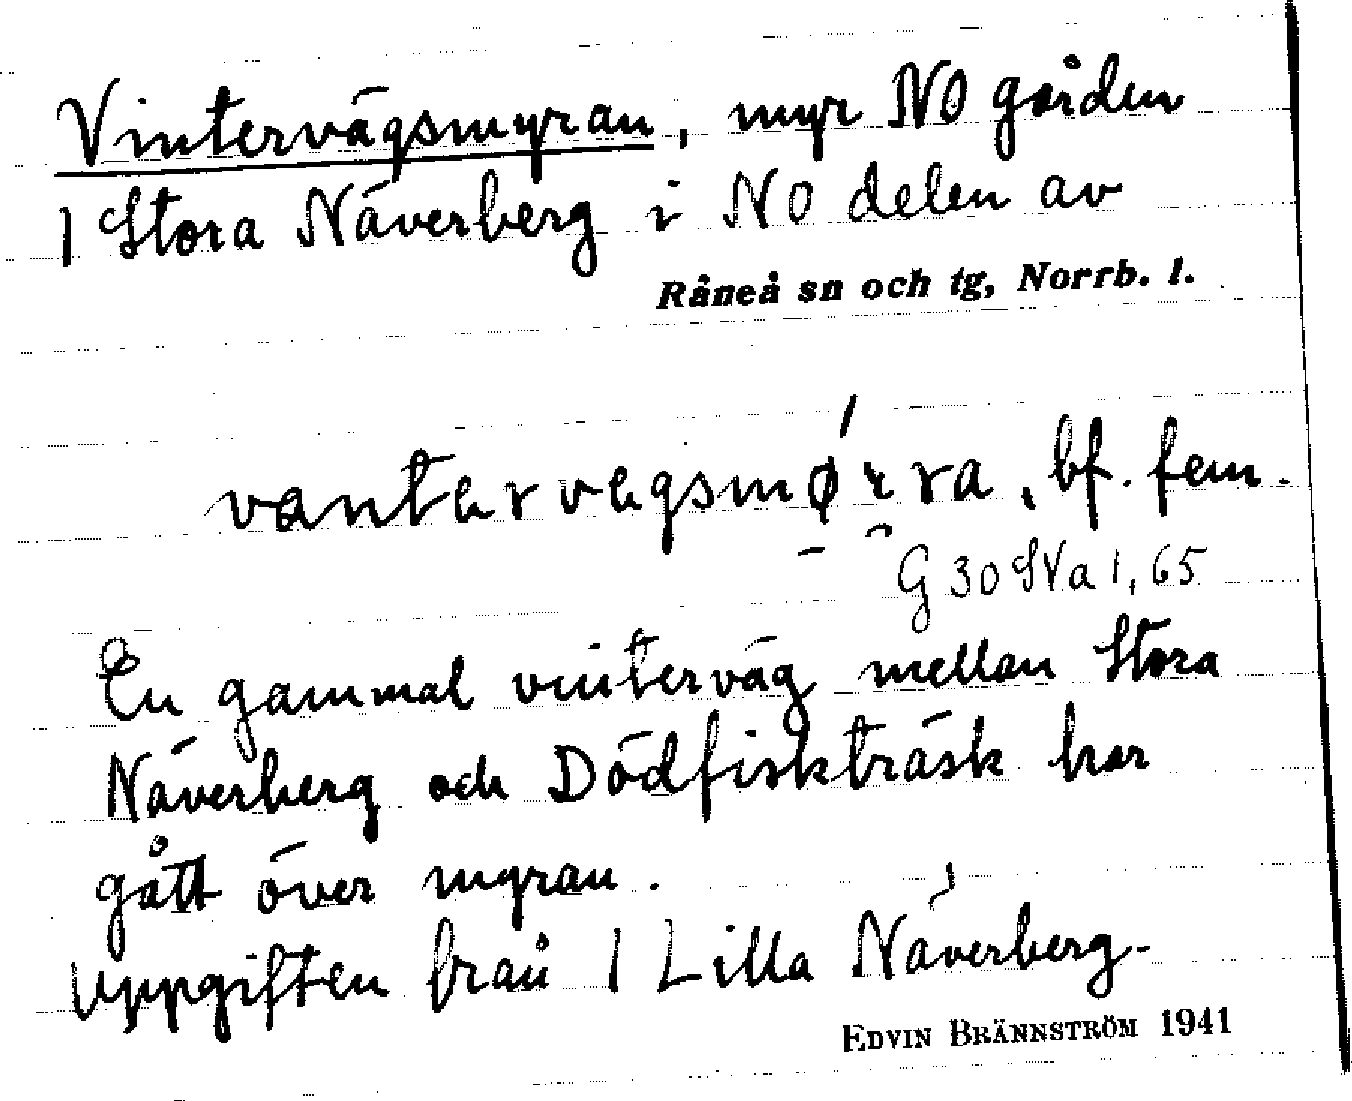 Vintervägsmyran, myr NO gården
1 Stora Näverberg i NO delen av
Råneå sn och tg, Norrb. l.
bf. fem.
G 30 SVa 1,65
En gammal vinterväg mellan Stora
Näverberg och Dödfiskträsk har
gått över myran.
Uppgiften från 1 Lilla Näverberg.
EDVIN BRÄNNSTRÖM 1941